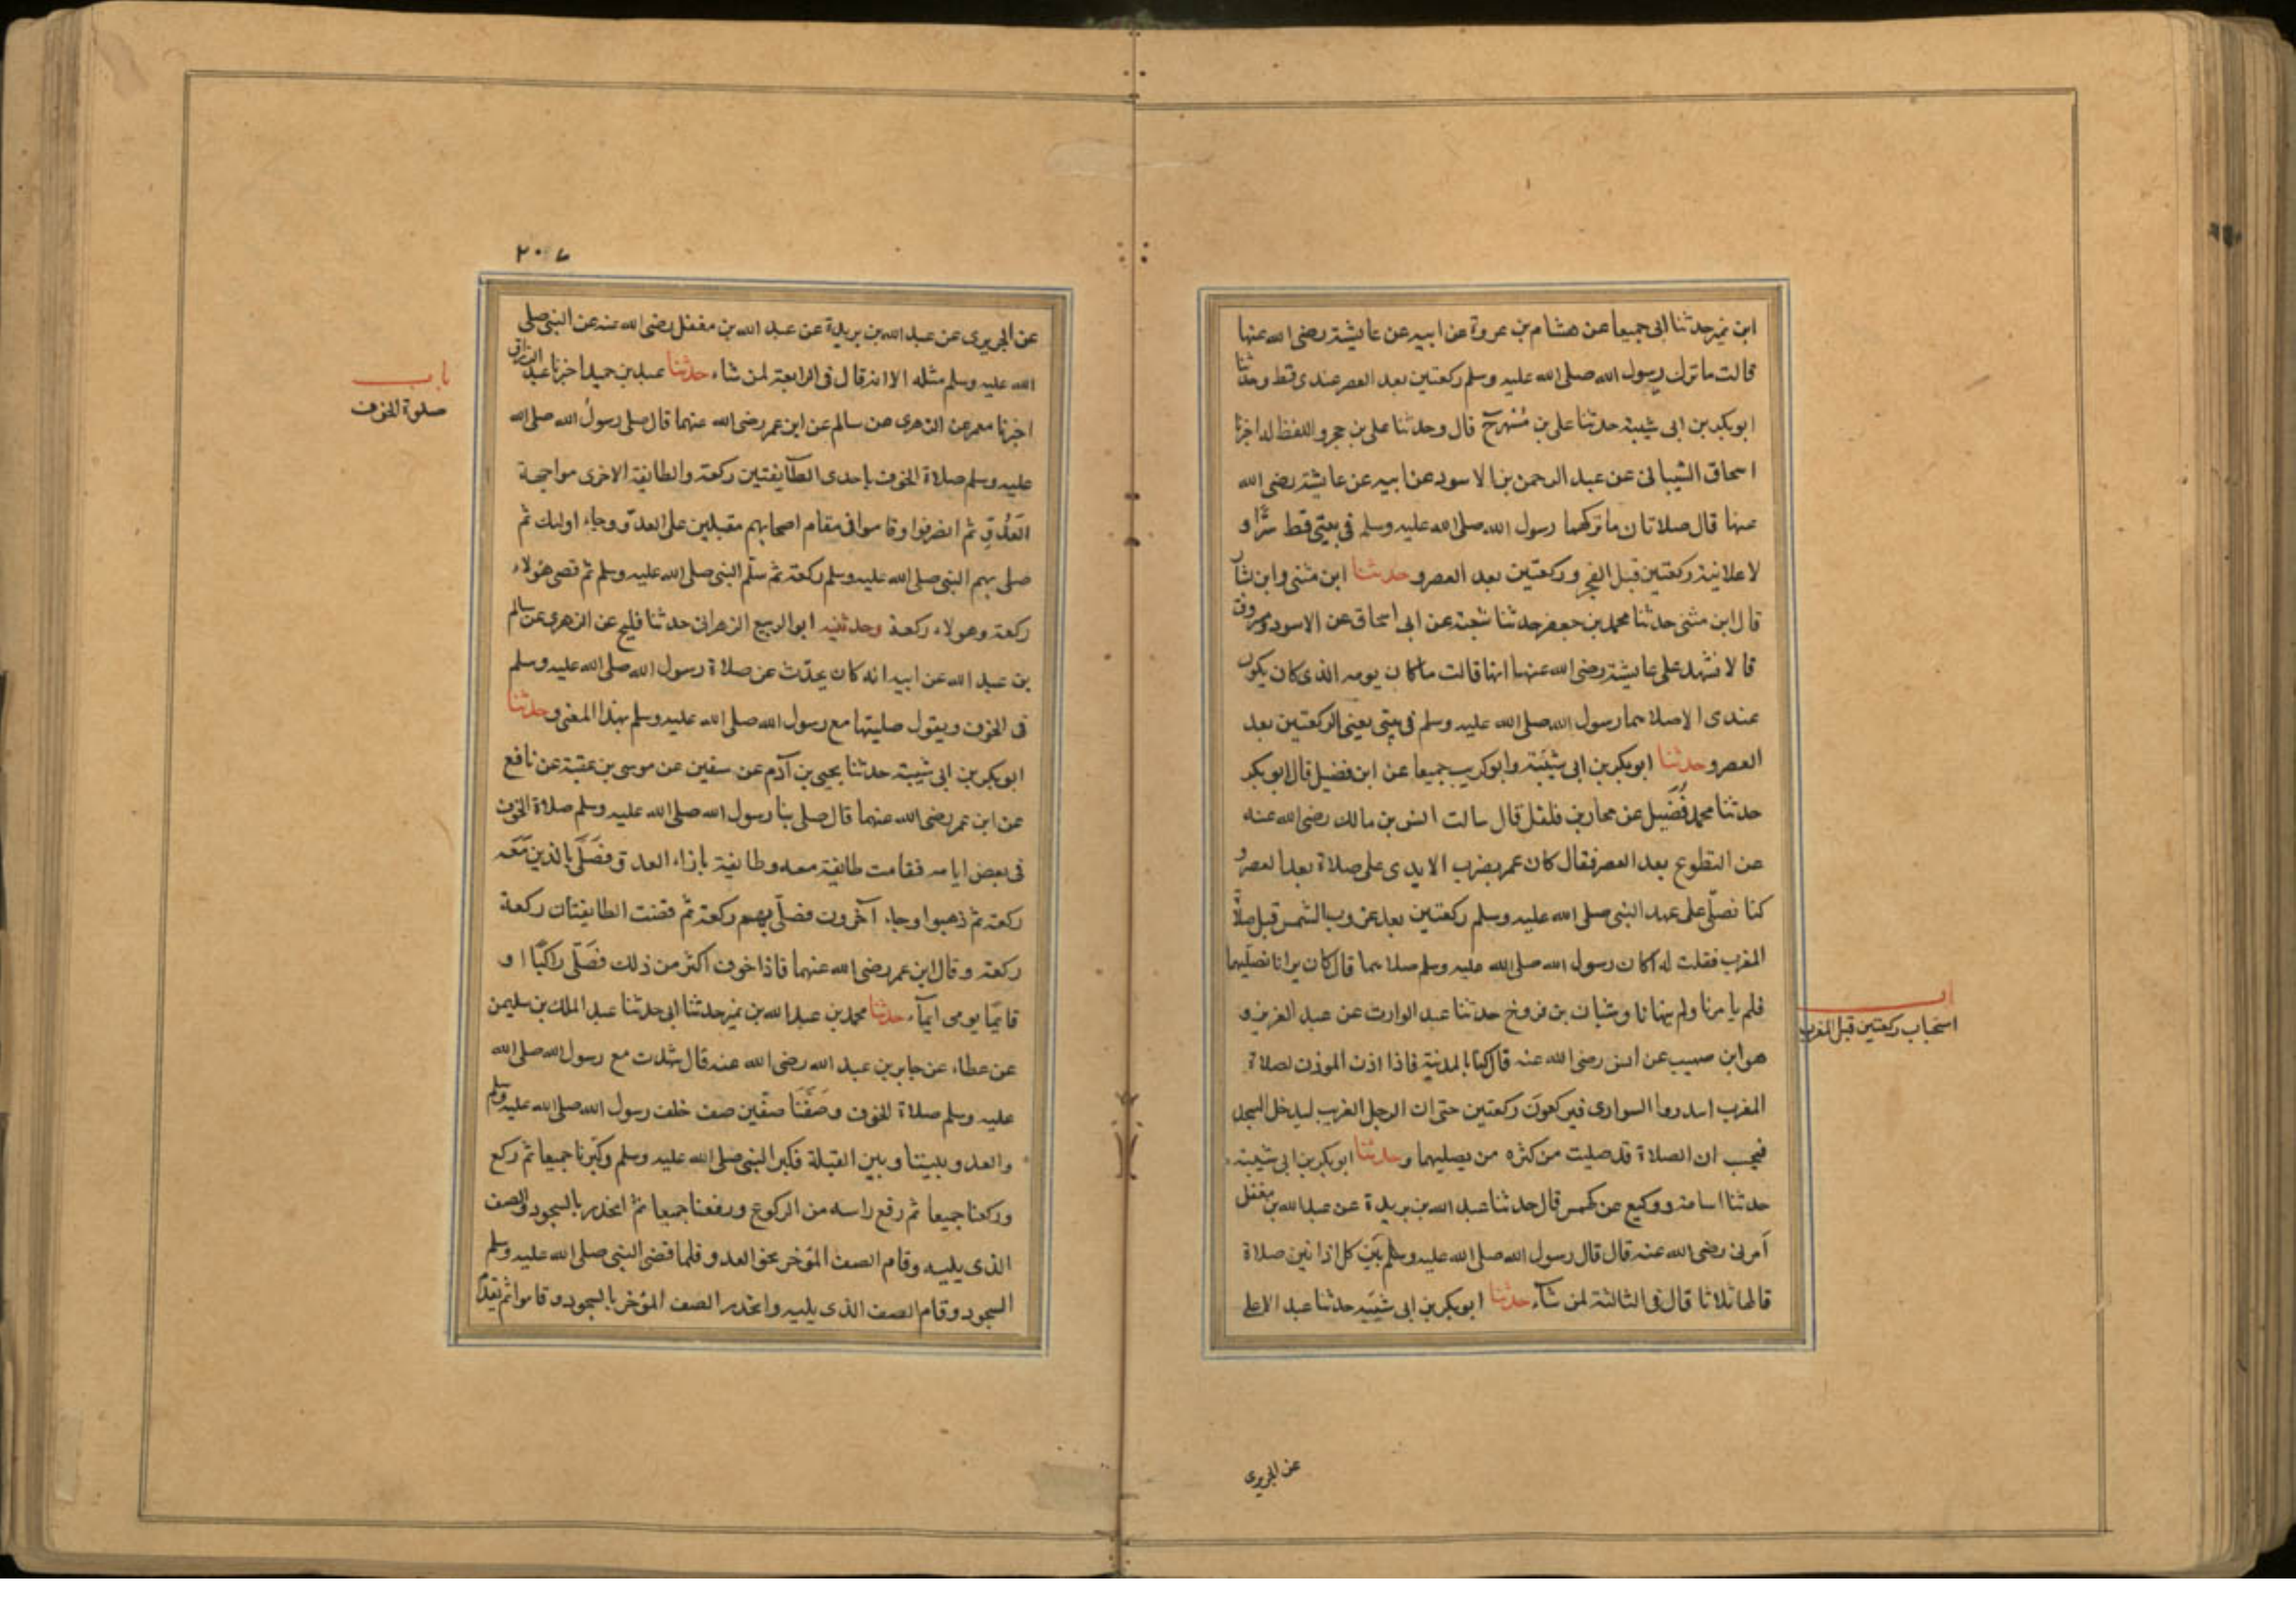 ابن نمير حدثنا ابى جميعا عن هشام بن عروة عن ابيه عن عايشة رضى الله عنها
قالت ما ترك رسول الله صلى الله عليه وسلم ركعتين بعد العصر عندى قط وحدثنا
ابو بكر بن ابى شيبة حدثنا على بن مُسْهر ح قال وحدثنا على بن حجر واللفظ له اخبرنا
اسحاق الشيبانى عن عبد الرحمن بن الاسود عن ابيه عن عايشة رضى الله
عنها قال صلاتان ما تركهما رسول الله صلى الله عليه وسلم فى بيتى قط سرًّا و
لا علانية ركعتين قبل الفجر وركعتين بعد العصر وحدثنا ابن مثنى وابن بشار
قال ابن مثنى حدثنا محمد بن جعفر حدثنا شعبة عن ابى اسحاق عن الاسود ومسروق
قالا نشهد على عايشة رضى الله عنها انها قالت ما كان يومه الذى كان يكون
عندى الا صلاهما رسول الله صلى الله عليه وسلم فى بيتى يعنى الركعتين بعد
العصر وحدثنا ابو بكر بن ابى شيبة وابو كريب جميعا عن ابن فضيل قال ابو بكر
حدثنا محمد فُضَيل عن مختار بن فلفل قال سالت انس بن مالك رضى الله عنه
عن التطوع بعد العصر فقال كان عمر يضرب الايدى على صلاة بعد العصر و
كنا نصلّى على عهد النبى صلى الله عليه وسلم ركعتين بعد غروب الشمس قبل صلاة
المغرب فقلت له اكان رسول الله صلى الله عليه وسلم صلاهما قال كان يرانا نصليهما
فلم يامرنا ولم ينهانا وشبان بن فروخ حدثنا عبد الوارث عن عبد العزيز و
باب
استحباب ركعتين قبل المغرب
هو ابن صهيب عن انس رضى الله عنه قال كنا بالمدينة فاذا اذن الموذن لصلاة
المغرب ابتدروا السوارى فيركعون ركعتين حتى ان الرجل الغريب ليدخل المسجد
فيحسب ان الصلاة قد صليت من كثره من يصليهما وحدثنا ابو بكر بن ابى شيبة
حدثنا اسامة ووكيع عن كهمس قال حدثنا عبد الله بن بريدة عن عبد الله بن مغفل
المزنى رضى الله عنه قال قال رسول الله صلى الله عليه وسلم بَين كل اذانين صلاة
قالها ثلاثا قال فى الثالثة لمن شآء حدثنا ابو بكر بن ابى شيبه حدثنا عبد الاعلى
عن الجريرى
٢٠٧
عن الجريرى عن عبد الله بن بريدة عن عبد الله بن مغفل رضى الله عنه عن النبى صلى
الله عليه وسلم مثله الا انه قال فى الرابعة لمن شاء حدثنا عبد بن حميد اخبرنا عبد الرزاق
باب
صلوة الخوف
اخبرنا معمر عن الزهرى عن سالم عن ابن عمر رضى الله عنهما قال صلى رسول الله صلى الله
عليه وسلم صلاة الخوف باحدى الطآيفتين ركعة والطايفة الاخرى مواجهة
العَدُوّ ثم انصرفوا وقاموا فى مقام اصحابهم مقبلين على العدوّ وجاء اولئك ثم
صلى بهم النبى صلى الله عليه وسلم ركعة ثم سلّم النبى صلى الله عليه وسلم ثم قضى هولاء
ركعة وهولاء ركعة وحدثنيه ابو الربيع الزهرانى حدثنا فليح عن الزهرى عن سالم
بن عبد الله عن ابيه انه كان يحدّث عن صلاة رسول الله صلى الله عليه وسلم
فى الخوف ويقول صليتها مع رسول الله صلى الله عليه وسلم بهذا المعنى وحدثنا
ابو بكر بن ابى شيبة حدثنا يحيى بن آدم عن سفين عن موسى بن عقبة عن نافع
عن ابن عمر رضى الله عنهما قال صلى بنا رسول الله صلى الله عليه وسلم صلاة الخوف
فى بعض ايامه فقامت طايفة معه وطايفة بازاء العدو فصَلّى بالذين مَعَه
ركعة ثم ذهبوا وجاء آخرون فصلّى بهم ركعة ثم قضت الطايفتان ركعة
ركعة وقال ابن عمر رضى الله عنهما فاذا خوف اكثر من ذلك فصَلّى راكبًا او
قايمًا يومى ايمآء حدثنا محمد بن عبد الله بن نمير حدثنا ابى حدثنا عبد الملك بن سليمن
عن عطاء عن جابر بن عبد الله رضى الله عنه قال شهدت مع رسول الله صلى الله
عليه وسلم صلاة الخوف وصَفَّنَا صفّين صف خلف رسول الله صلى الله عليه وسلم
والعدو بيننا وبين القبلة فكبر النبى صلى الله عليه وسلم وكبّرنا جميعا ثم ركع
وركعنا جميعا ثم رفع راسه من الركوع ورفعنا جميعا ثمّ انحدر بالسجود والصف
الذى يليه وقام الصف المؤخر نحو العدو فلما قضى النبى صلى الله عليه وسلم
السجود وقام الصف الذى يليه وانحدر الصف المؤخر بالسجود وقاموا ثم تقدّم